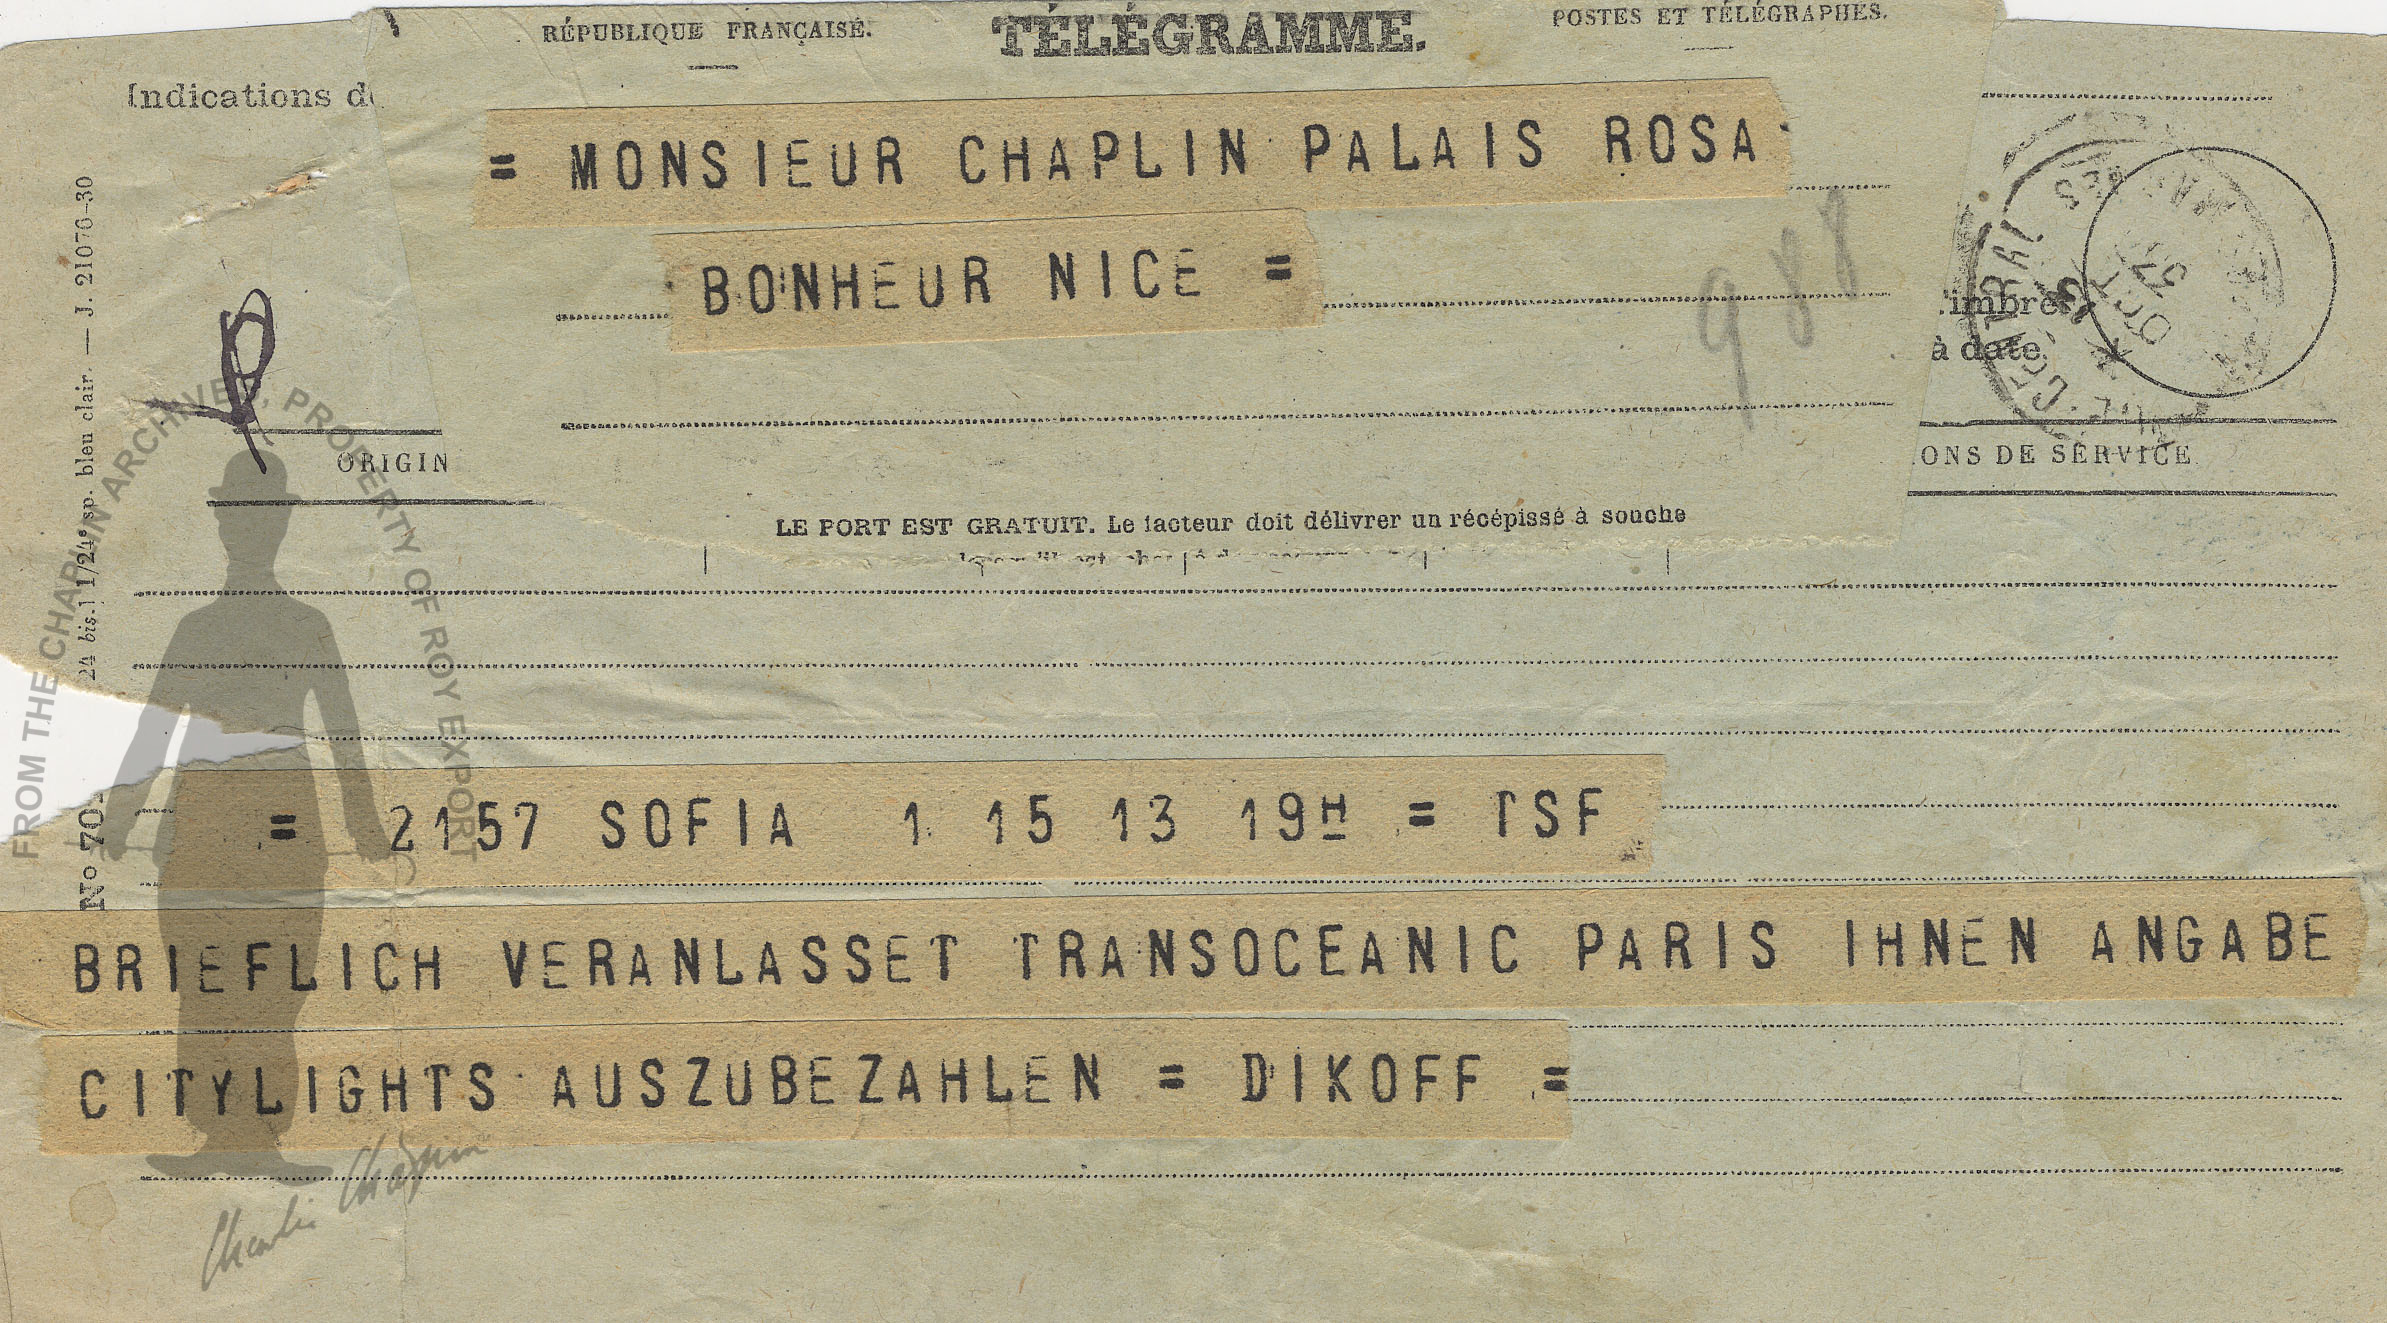 RÉPUBLIQUE FRANÇAISE.
TÉLÉGRAMME.
POSTES ET TÉLÉGRAPHES.
Indications de
= MONSIEUR CHAPLIN PALAIS ROSA
BONHEUR NICE =
988
Timbre
à date.
CENTRAL
OCT
ORIGIN
ONS DE SERVICE
LE PORT EST GRATUIT. Le facteur doit délivrer un récépissé à souche
24 bis.] 1/24e sp. bleu clair. — J. 21076-30
No 70
= 2157 SOFIA 1 15 13 19H = TSF
BRIEFLICH VERANLASSET TRANSOCEANIC PARIS IHNEN ANGABE
CITYLIGHTS AUSZUBEZAHLEN = DIKOFF =
FROM THE CHAPLIN ARCHIVES, PROPERTY OF ROY EXPORT
Charlie Chaplin